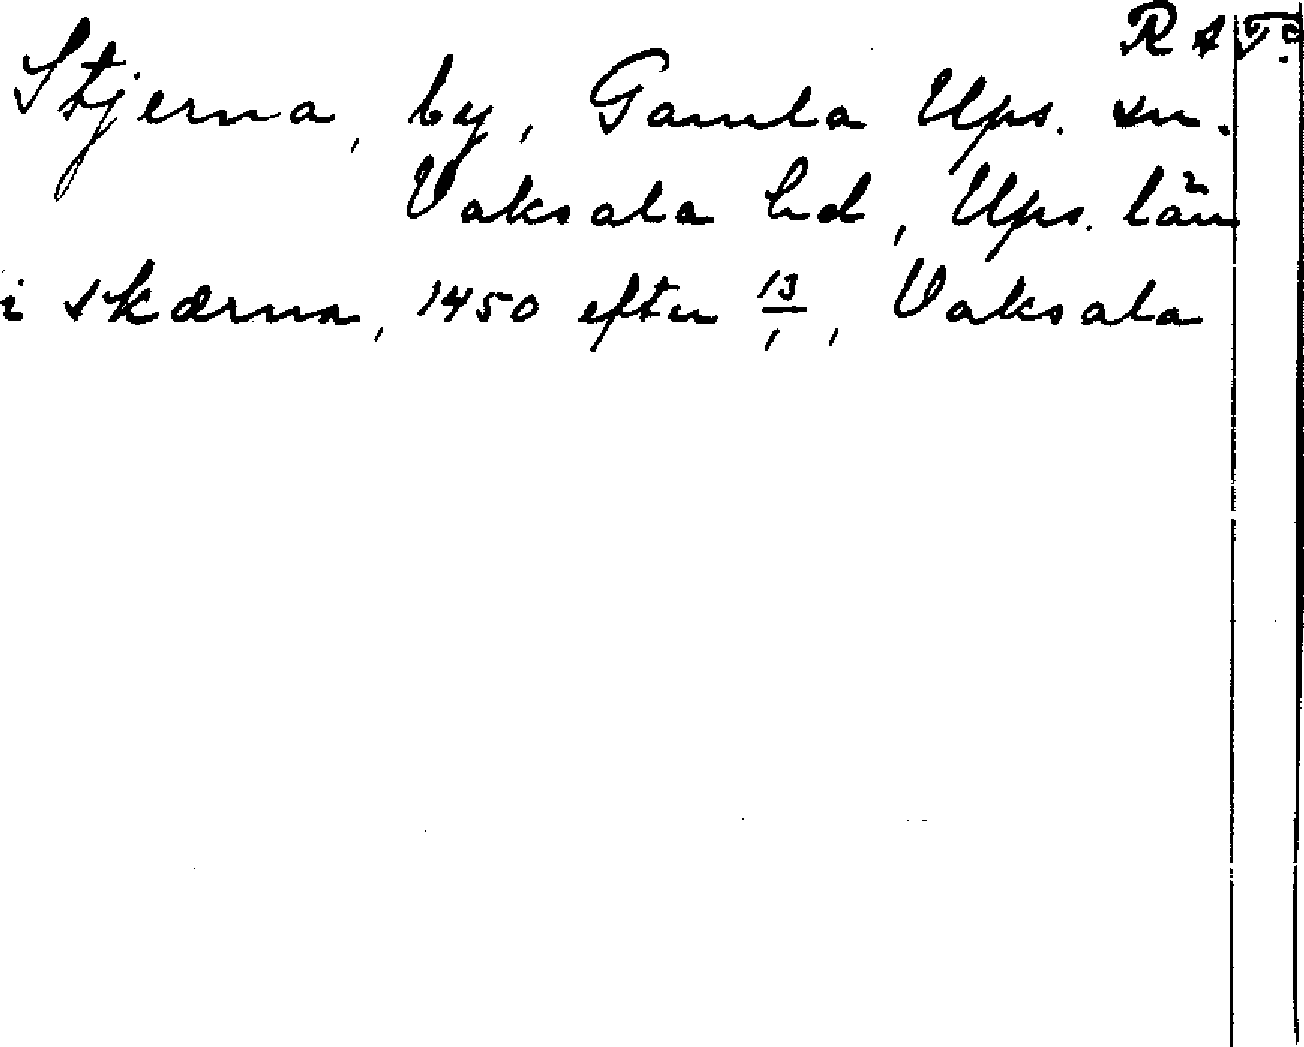 Stjerna, by, Gamla Ups. sn.
Vaksala hd, Ups. län
i skærna, 1450 efter 13/1, Vaksala